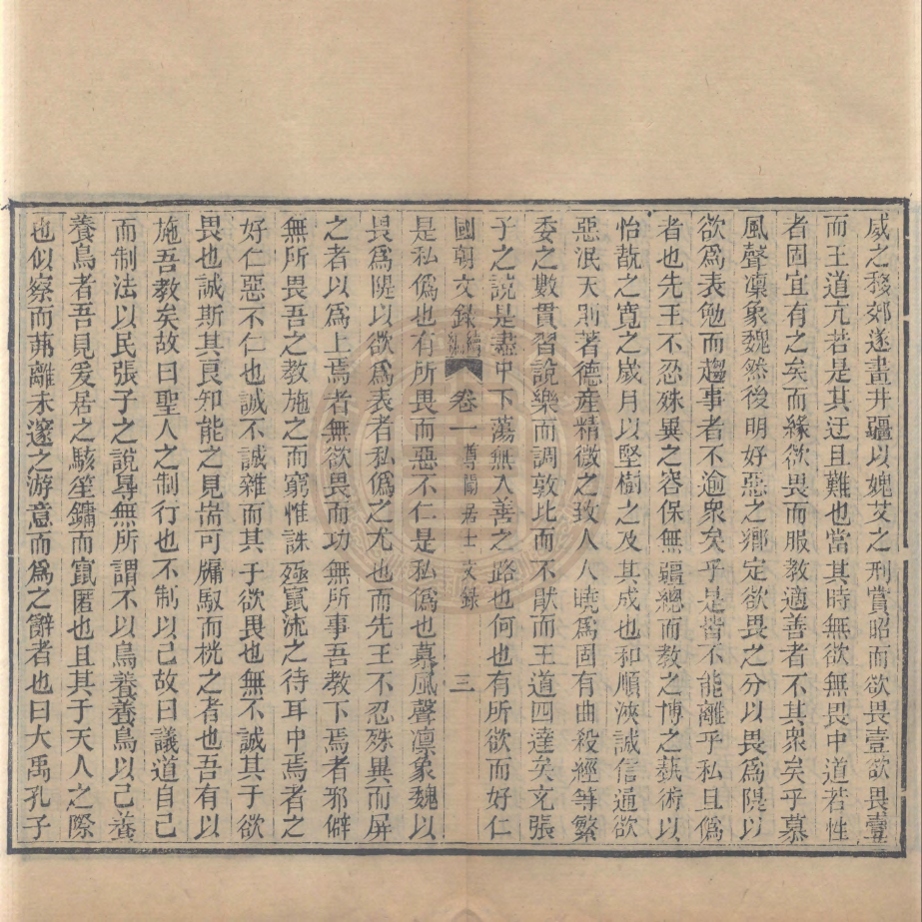 威之移郊遂畫井疆以媿艾之刑賞昭而欲畏壹欲畏壹
而王道亢若是其迂且難也當其時無欲無畏中道若性
者固宜有之矣而緣欲畏而服教適善者不其衆矣乎慕
風聲凛象魏然後明好惡之鄉定欲畏之分以畏爲隄以
欲爲表勉而趨事者不逾衆矣乎是皆不能離乎私且僞
者也先王不忍殊異之容保無疆總而教之博之蓺術以
怡哉之寛之嵗月以堅樹之及其成也和順浹誠信通欲
惡泯天則著德産精微之致人人曉爲固有曲殺經等繁
委之數貫習說樂而調敦比而不猒而王道四達矣文張
子之說是盡中下蕩無入善之路也何也有所欲而好仁
國朝文錄 續編 卷一 尊聞居士文錄 三
是私僞也有所畏而惡不仁是私僞也慕風聲凛象魏以
畏爲隄以欲爲表者私僞之尤也而先王不忍殊異而屏
之者以爲上焉者無欲畏而功無所事吾教下焉者邪僻
無所畏吾之教施之而窮惟誅殛竄流之待耳中焉者之
好仁惡不仁也誠不誠雜而其于欲畏也無不誠其于欲
畏也誠斯其良知能之見耑可牖馭而桄之者也吾有以
施吾教矣故曰聖人之制行也不制以己故曰議道自己
而制法以民張子之說㝵無所謂不以鳥養養鳥以己養
養鳥者吾見爰居之駭笙鏞而竄匿也且其于天人之際
也似察而茀離未邃之游意而爲之辭者也曰大禹孔子